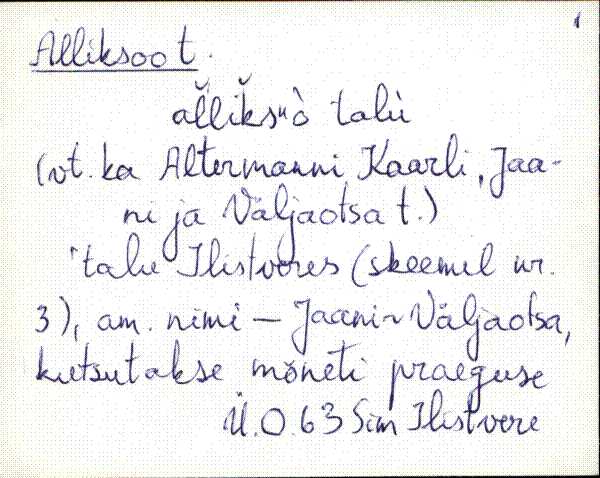 Alliksoo t.
al̆lik̆sᵘò talù
(vt. ka Altermanni Kaarli, Jaa-
ni ja Väljaotsa t.)
'talu Ilistveres (skeemil nr.
3), am. nimi — Jaani ~ Väljaotsa,
kutsutakse mõneti praeguse
Ü.O. 63 Sim Ilistvere